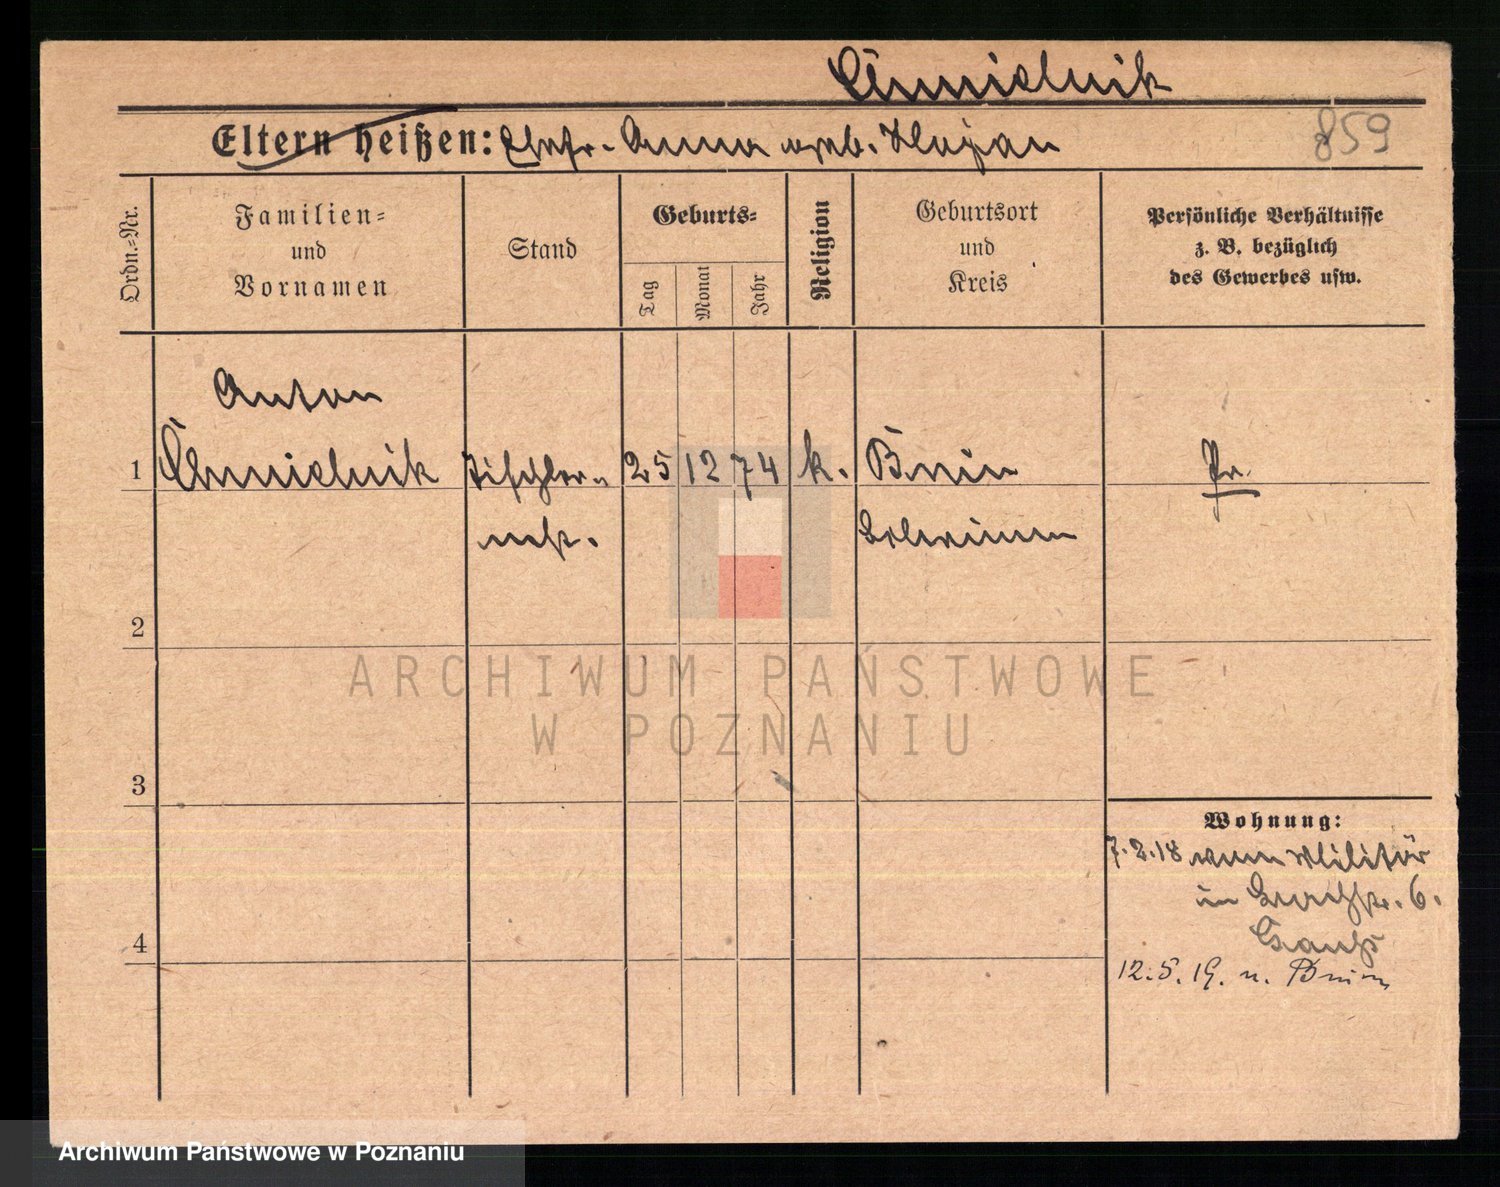 Chmielnik
Eltern heißen: Ehefr. Anna geb. Klojan
859
Ordn.=Nr.
Familien=
und
Vornamen
Stand
Geburts=
Tag
Monat
Jahr
Religion
Geburtsort
und
Kreis
Persönliche Verhältnisse
z. B. bezüglich
des Gewerbes usw.
Anton
1 Chmielnik Tischler= 25 12 74 k. Bnin Pr.
mstr.
2
3
4
Wohnung:
7.2.18 vom Militär
in
6.
12.5.19. n. Bnin
ARCHIWUM PAŃSTWOWE
W POZNANIU
Archiwum Państwowe w Poznaniu